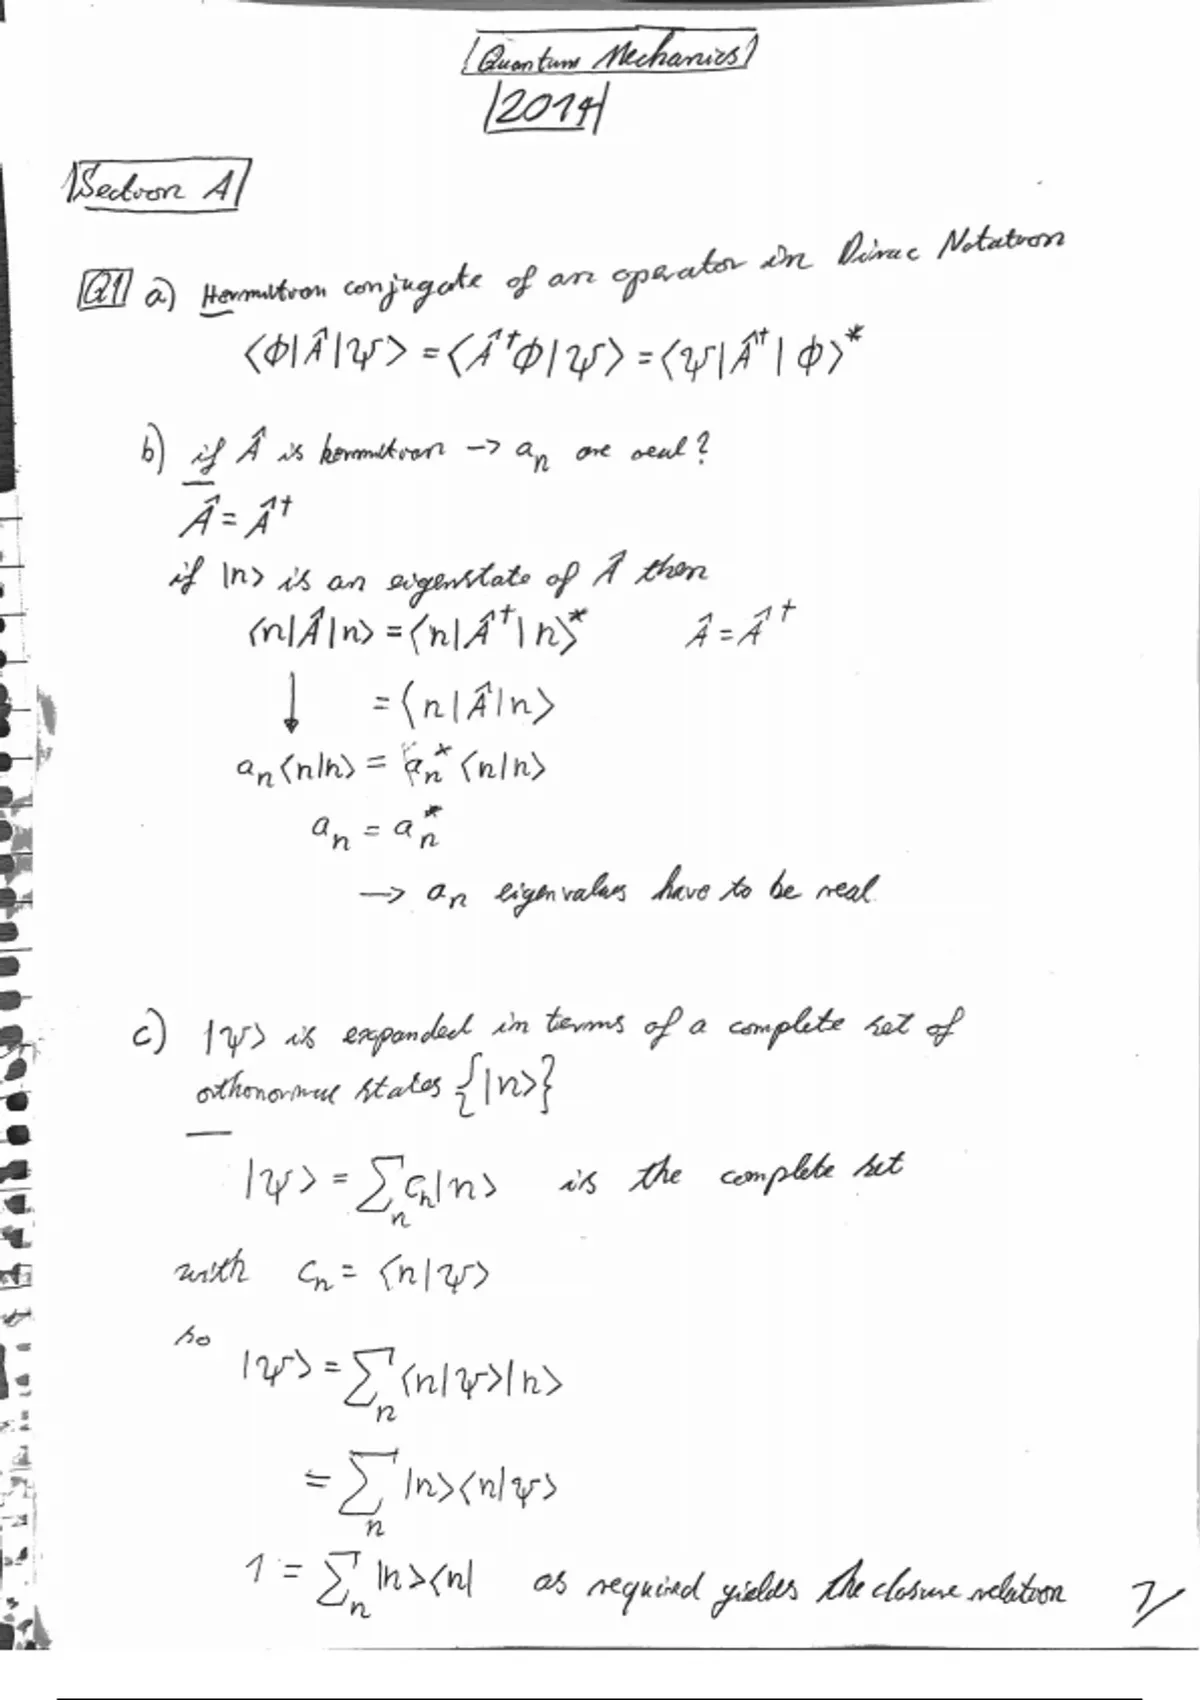 Quantum Mechanics
2014
Section A
Q1 a) Hermitian conjugate of an operator in Dirac Notation
⟨Φ|Â|Ψ⟩ = ⟨Â†Φ|Ψ⟩ = ⟨Ψ|Â†|Φ⟩*
b) if Â is hermitian → aₙ are real?
Â = Â†
if |n⟩ is an eigenstate of Â then
⟨n|Â|n⟩ = ⟨n|Â†|n⟩* Â = Â†
↓ = ⟨n|Â|n⟩
aₙ⟨n|n⟩ = aₙ*⟨n|n⟩
aₙ = aₙ*
→ aₙ eigenvalues have to be real
c) |Ψ⟩ is expanded in terms of a complete set of
orthonormal states {|n⟩}
|Ψ⟩ = ∑ₙ cₙ|n⟩ is the complete set
with cₙ = ⟨n|Ψ⟩
so
|Ψ⟩ = ∑ₙ ⟨n|Ψ⟩|n⟩
= ∑ₙ |n⟩⟨n|Ψ⟩
1 = ∑ₙ |n⟩⟨n| as required yields the closure relation